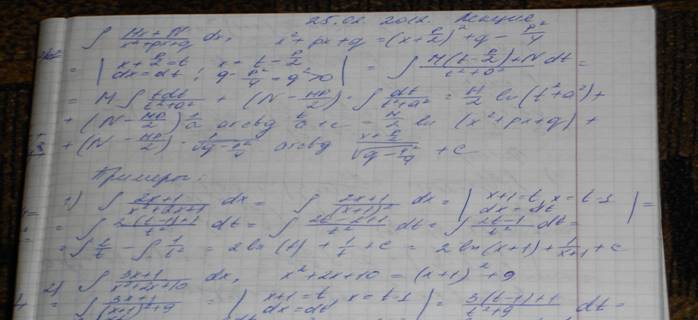 25.02.2012. Лекция
∫ (Mx+N)/(x²+px+q) dx, x²+px+q = (x+p/2)² + q - p²/4
= | x+p/2=t, x=t-p/2; dx=dt; q-p²/4=a²>0 | = ∫ (M(t-p/2)+N dt)/(t²+a²) =
= M ∫ tdt/(t²+a²) + (N - Mp/2) · ∫ dt/(t²+a²) = M/2 ln(t²+a²) +
+ (N - Mp/2) 1/a arctg t/a + c = M/2 ln (x²+px+q) +
+ (N - Mp/2) · 1/√(q-p²/4) arctg (x+p/2)/√(q-p²/4) + c
Примеры:
1) ∫ (2x+1)/(x²+2x+1) dx = ∫ (2x+1)/(x+1)² dx = | x+1=t, x=t-1; dx=dt | =
= ∫ (2(t-1)+1)/t² dt = ∫ (2t-2+1)/t² dt = ∫ (2t-1)/t² dt =
= ∫ 2/t - ∫ 1/t² = 2 ln(t) + 1/t + c = 2 ln(x+1) + 1/(x+1) + c
2) ∫ (3x+1)/(x²+2x+10) dx, x²+2x+10 = (x+1)² + 9
= ∫ (3x+1)/((x+1)²+9) = | x+1=t, x=t-1; dx=dt | = (3(t-1)+1)/(t²+9) dt =